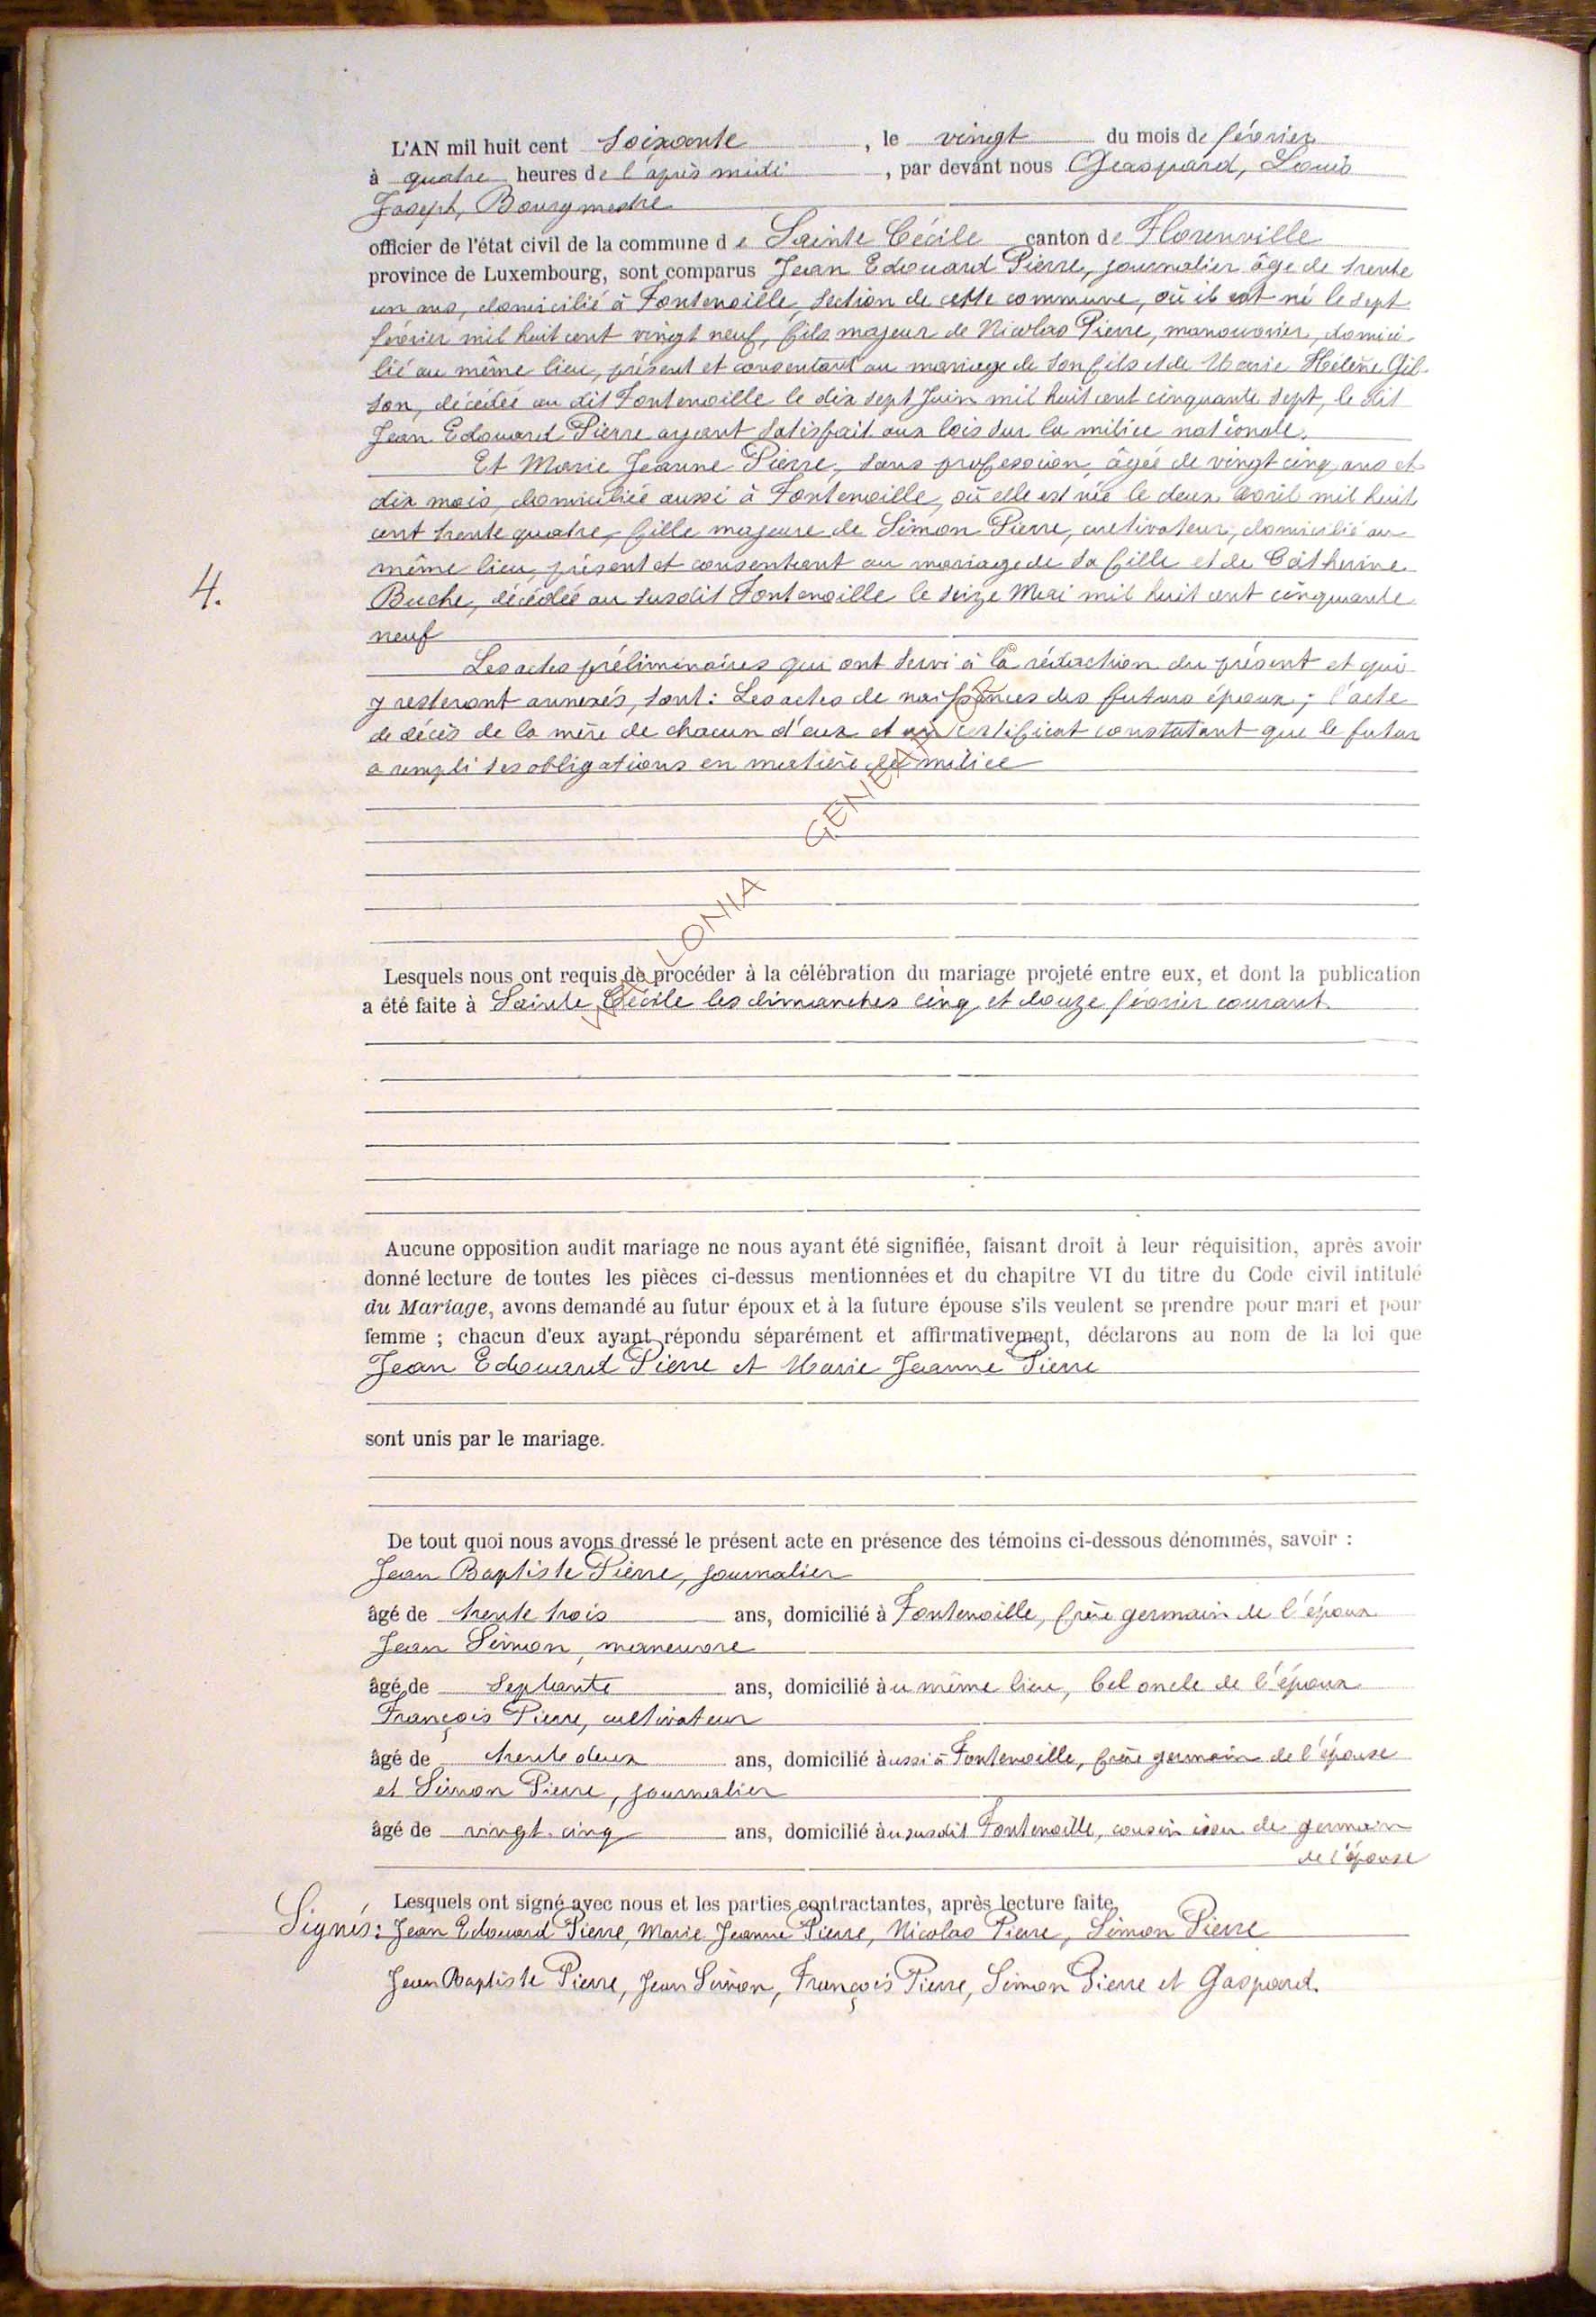 L'AN mil huit cent soixante, le vingt du mois de février
à quatre heures de l'après midi, par devant nous Gaspard, Louis
Joseph, Bourgmestre
officier de l'état civil de la commune de Sainte Cécile canton de Florenville
province de Luxembourg, sont comparus Jean Edouard Pierre, journalier âge de trente
un ans, domicilié à Fontenoille, section de cette commune, où il est né le sept
février mil huit cent vingt neuf, fils majeur de Nicolas Pierre, manouvrier, domici-
lié au même lieu, présent et consentant au mariage de son fils et de Marie Hélène Gil-
son, décédée au dit Fontenoille le dix sept Juin mil huit cent cinquante sept, le dit
Jean Edouard Pierre ayant satisfait aux lois sur la milice nationale.
Et Marie Jeanne Pierre, sans profession, âgée de vingt cinq ans et
dix mois, domiciliée aussi à Fontenoille, où elle est née le deux Avril mil huit
cent trente quatre, fille majeure de Simon Pierre, cultivateur, domicilié au
même lieu, présent et consentant au mariage de sa fille et de Catherine
4.
Buche, décédée au susdit Fontenoille le seize Mai mil huit cent cinquante
neuf
Les actes préliminaires qui ont servi à la rédaction du présent et qui
y resteront annexés, sont: Les actes de naissances des futurs époux; l'acte
de décès de la mère de chacun d'eux et un certificat constatant que le futur
a rempli ses obligations en matière de milice
WALLONIA GENEALOGIE
Lesquels nous ont requis de procéder à la célébration du mariage projeté entre eux, et dont la publication
a été faite à Sainte Cécile les dimanches cinq et douze février courant.
Aucune opposition audit mariage ne nous ayant été signifiée, faisant droit à leur réquisition, après avoir
donné lecture de toutes les pièces ci-dessus mentionnées et du chapitre VI du titre du Code civil intitulé
du Mariage, avons demandé au futur époux et à la future épouse s'ils veulent se prendre pour mari et pour
femme ; chacun d'eux ayant répondu séparément et affirmativement, déclarons au nom de la loi que
Jean Edouard Pierre et Marie Jeanne Pierre
sont unis par le mariage.
De tout quoi nous avons dressé le présent acte en présence des témoins ci-dessous dénommés, savoir :
Jean Baptiste Pierre, journalier
âgé de trente trois ans, domicilié à Fontenoille, frère germain de l'époux
Jean Simon, maneuvre
âgé de septante ans, domicilié àu même lieu, bel oncle de l'époux
François Pierre, cultivateur
âgé de trente deux ans, domicilié àussi à Fontenoille, frère germain de l'épouse
et Simon Pierre, journalier
âgé de vingt-cinq ans, domicilié àu susdit Fontenoille, cousin issu de germain
de l'épouse
Lesquels ont signé avec nous et les parties contractantes, après lecture faite
Signés: Jean Edouard Pierre, Marie Jeanne Pierre, Nicolas Pierre, Simon Pierre
Jean Baptiste Pierre, Jean Simon, François Pierre, Simon Pierre et Gaspard.